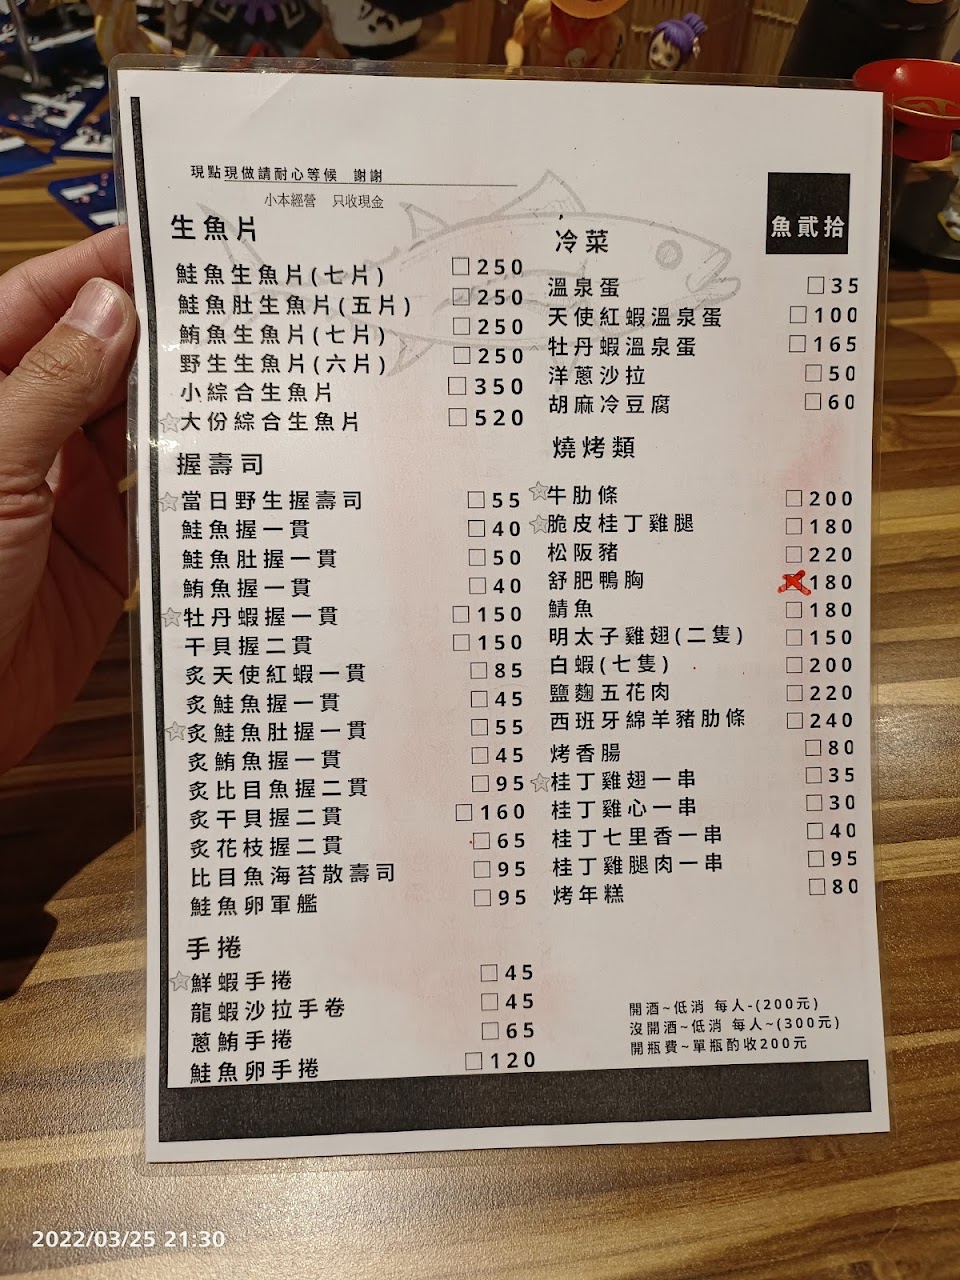 現點現做請耐心等候 謝謝
小本經營 只收現金
魚貳拾
生魚片
鮭魚生魚片(七片) □250
鮭魚肚生魚片(五片) □250
鮪魚生魚片(七片) □250
野生生魚片(六片) □250
小綜合生魚片 □350
☆大份綜合生魚片 □520
握壽司
☆當日野生握壽司 □55
鮭魚握一貫 □40
鮭魚肚握一貫 □50
鮪魚握一貫 □40
☆牡丹蝦握一貫 □150
干貝握二貫 □150
炙天使紅蝦一貫 □85
炙鮭魚握一貫 □45
☆炙鮭魚肚握一貫 □55
炙鮪魚握一貫 □45
炙比目魚握二貫 □95
炙干貝握二貫 □160
炙花枝握二貫 □65
比目魚海苔散壽司 □95
鮭魚卵軍艦 □95
手捲
☆鮮蝦手捲 □45
龍蝦沙拉手卷 □45
蔥鮪手捲 □65
鮭魚卵手捲 □120
冷菜
溫泉蛋 □35
天使紅蝦溫泉蛋 □100
牡丹蝦溫泉蛋 □165
洋蔥沙拉 □50
胡麻冷豆腐 □60
燒烤類
☆牛肋條 □200
☆脆皮桂丁雞腿 □180
松阪豬 □220
舒肥鴨胸 □180
鯖魚 □180
明太子雞翅(二隻) □150
白蝦(七隻) □200
鹽麴五花肉 □220
西班牙綿羊豬肋條 □240
烤香腸 □80
☆桂丁雞翅一串 □35
桂丁雞心一串 □30
桂丁七里香一串 □40
桂丁雞腿肉一串 □95
烤年糕 □80
開酒~低消 每人-(200元)
沒開酒~低消 每人~(300元)
開瓶費~單瓶酌收200元
2022/03/25 21:30